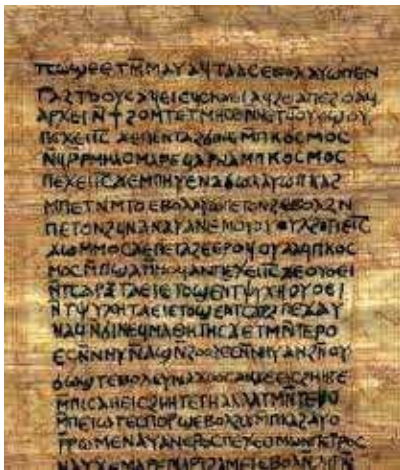 ⲧⲥⲱϣⲉ ⲉⲧⲙ̄ⲙⲁⲩ ⲁϥⲧⲁⲁⲥ ⲉⲃⲟⲗ ⲁⲩⲱ ⲡⲉⲛ
ⲧⲁϩⲧⲟⲟⲩⲥ ⲁϥⲉⲓ ⲉϥⲥⲕⲁⲉⲓ ⲁϥϩⲉ ⲁⲡⲉϩⲟ ⲁϥ
ⲁⲣⲭⲉⲓ ⲛ̄ϯ ϩⲟⲙⲧ ⲉⲧⲙⲏⲥⲉ ⲛ̄ⲛⲉⲧϥⲟⲩⲟϣⲟⲩ
ⲡⲉϫⲉ ⲓ̅ⲥ̅ ϫⲉ ⲡⲉⲛⲧⲁϩϭⲓⲛⲉ ⲙ̄ⲡⲕⲟⲥⲙⲟⲥ
ⲛ̄ϥⲣ̄ ⲣⲙ̄ⲙⲁⲟ ⲙⲁⲣⲉϥⲁⲣⲛⲁ ⲙ̄ⲡⲕⲟⲥⲙⲟⲥ
ⲡⲉϫⲉ ⲓ̅ⲥ̅ ϫⲉ ⲙ̄ⲡⲏⲩⲉ ⲛⲁϭⲱⲗ ⲁⲩⲱ ⲡⲕⲁϩ
ⲙ̄ⲡⲉⲧⲛ̄ⲙ̄ⲧⲟ ⲉⲃⲟⲗ ⲁⲩⲱ ⲡⲉⲧⲟⲛϩ ⲉⲃⲟⲗ ϩⲛ̄
ⲡⲉⲧⲟⲛϩ ϥⲛⲁⲛⲁⲩ ⲁⲛ ⲉⲙⲟⲩ ⲟⲩⲭ ϩⲟⲧⲓ ⲉⲓ̅ⲥ̅
ϫⲱ ⲙ̄ⲙⲟⲥ ϫⲉ ⲡⲉⲧⲁϩⲉ ⲉⲣⲟϥ ⲟⲩⲁⲁϥ ⲡⲕⲟⲥ
ⲙⲟⲥ ⲙ̄ⲡϣⲁ ⲙ̄ⲙⲟϥ ⲁⲛ ⲡⲉϫⲉ ⲓ̅ⲥ̅ ϫⲉ ⲟⲩⲟⲉⲓ
ⲛ̄ⲧⲥⲁⲣⲝ ⲧⲁⲉⲓ ⲉⲧⲟϣⲉ ⲛ̄ⲧⲯⲩⲭⲏ ⲟⲩⲟⲉⲓ
ⲛ̄ⲧⲯⲩⲭⲏ ⲧⲁⲉⲓ ⲉⲧⲟϣⲉ ⲛ̄ⲧⲥⲁⲣⲝ ⲡⲉϫⲁⲩ
ⲛⲁϥ ⲛ̄ϭⲓ ⲛⲉϥⲙⲁⲑⲏⲧⲏⲥ ϫⲉ ⲧⲙⲛ̄ⲧⲉⲣⲟ
ⲉⲥⲛ̄ⲛⲏⲩ ⲛ̄ⲁϣ ⲛ̄ϩⲟⲟⲩ ⲉⲥⲛ̄ⲛⲏⲩ ⲁⲛ ϩⲛ̄ ⲟⲩ
ϭⲱϣⲧ ⲉⲃⲟⲗ ⲉⲩⲛⲁϫⲟⲟⲥ ⲁⲛ ϫⲉ ⲉⲓⲥϩⲏⲏⲧⲉ
ⲙ̄ⲡⲓⲥⲁ ⲏ ⲉⲓⲥϩⲏⲏⲧⲉ ⲧⲏ ⲁⲗⲗⲁ ⲧⲙⲛ̄ⲧⲉⲣⲟ
ⲙ̄ⲡⲉⲓⲱⲧ ⲉⲥⲡⲟⲣϣ ⲉⲃⲟⲗ ϩⲓϫⲙ̄ ⲡⲕⲁϩ ⲁⲩⲱ
ⲣ̄ⲣⲱⲙⲉ ⲛⲁⲩ ⲁⲛ ⲉⲣⲟⲥ ⲡⲉϫⲉ ⲥⲓⲙⲱⲛ ⲡⲉⲧⲣⲟⲥ
ⲛⲁⲩ ϫⲉ ⲙⲁⲣⲉ ⲙⲁⲣⲓϩⲁⲙ ⲉⲓ ⲉⲃⲟⲗ ⲛ̄ϩⲏⲧⲛ̄